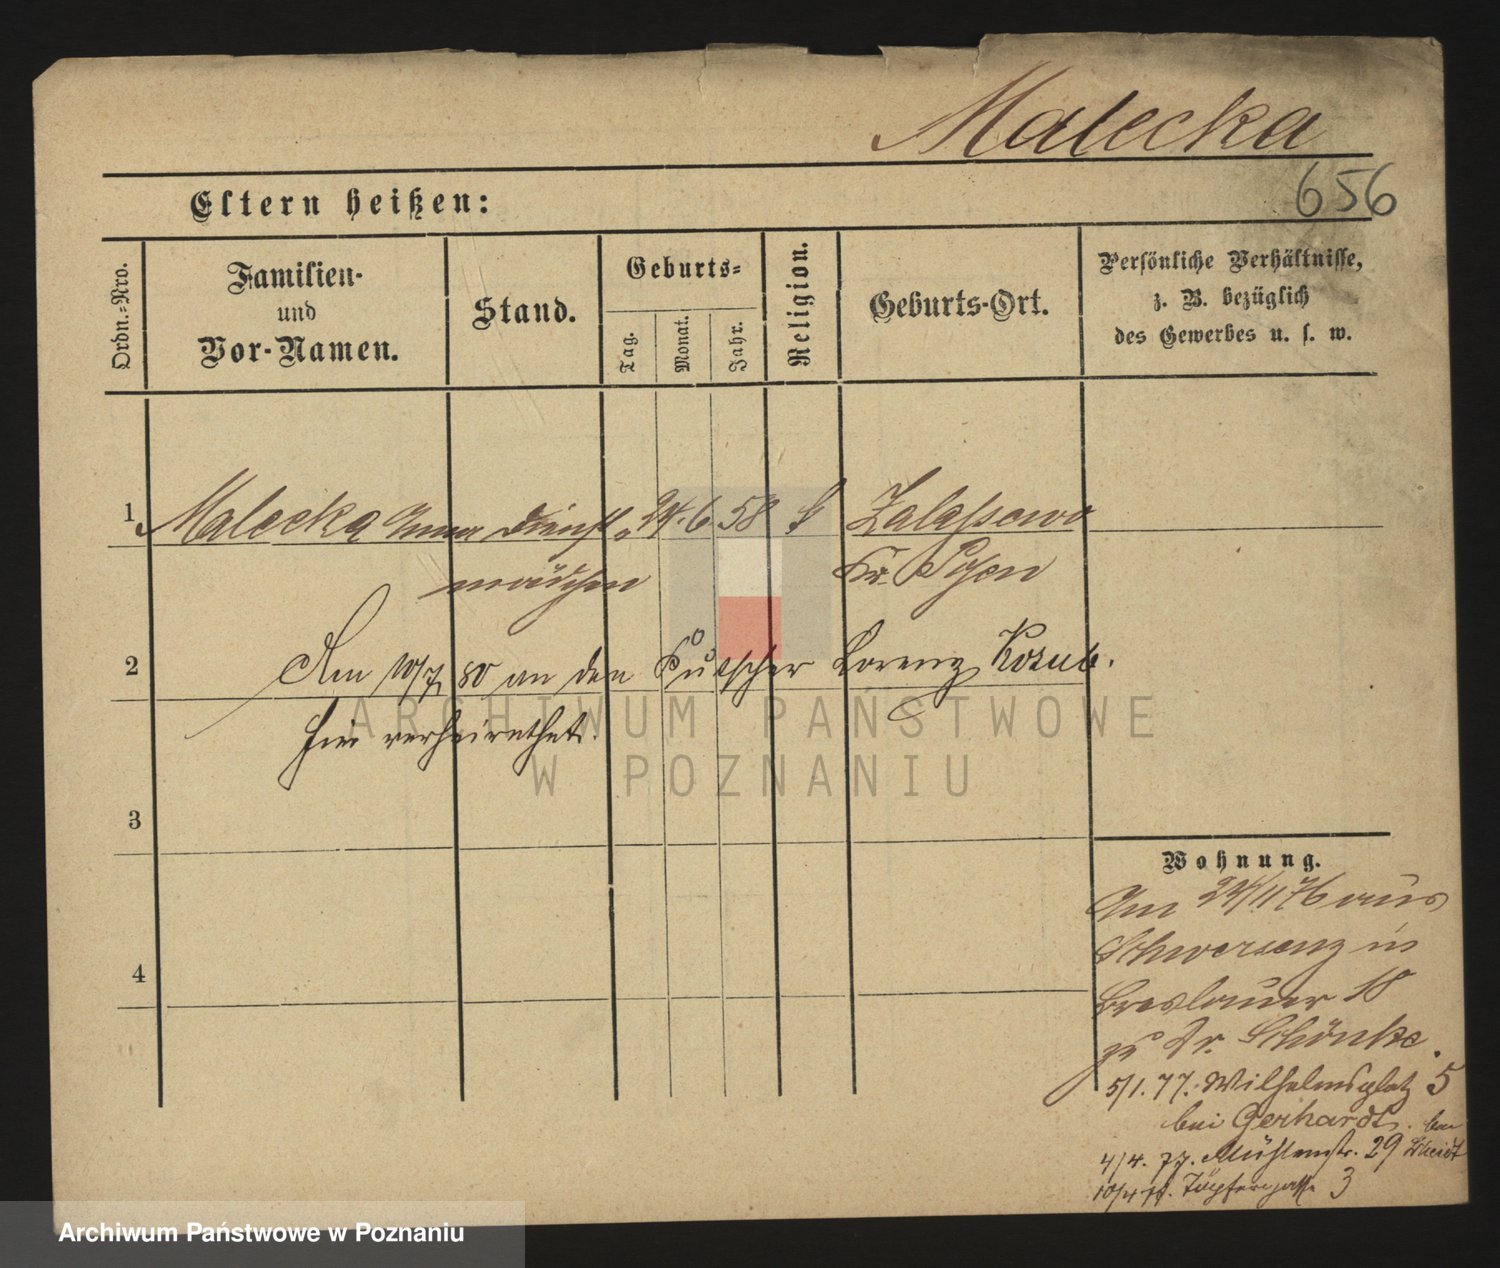 Malecka
656
Eltern heißen:
Ordn.-Nro.
Familien-
und
Vor-Namen.
Stand.
Geburts-
Tag.
Monat.
Jahr.
Religion.
Geburts-Ort.
Persönliche Verhältnisse,
z. B. bezüglich
des Gewerbes u. s. w.
1 Malecka Anna Dienst- 24. 6. 58 Zalasewo
mädchen Kr. Posen
2 Am 10/7 80 an den Kutscher Lorenz Kozub.
hier verheirathet.
3
4
ARCHIWUM PAŃSTWOWE
W POZNANIU
Wohnung.
Am 24/11 76 aus
Schwersenz in
Breslauer 18
zu Dr. Schönke.
5/1. 77. Wilhelmsplatz 5
bei Gerhardt.
4/4. 77. Mühlenstr. 29 bei Scheidt
10/4 78. Töpfergasse 3
Archiwum Państwowe w Poznaniu